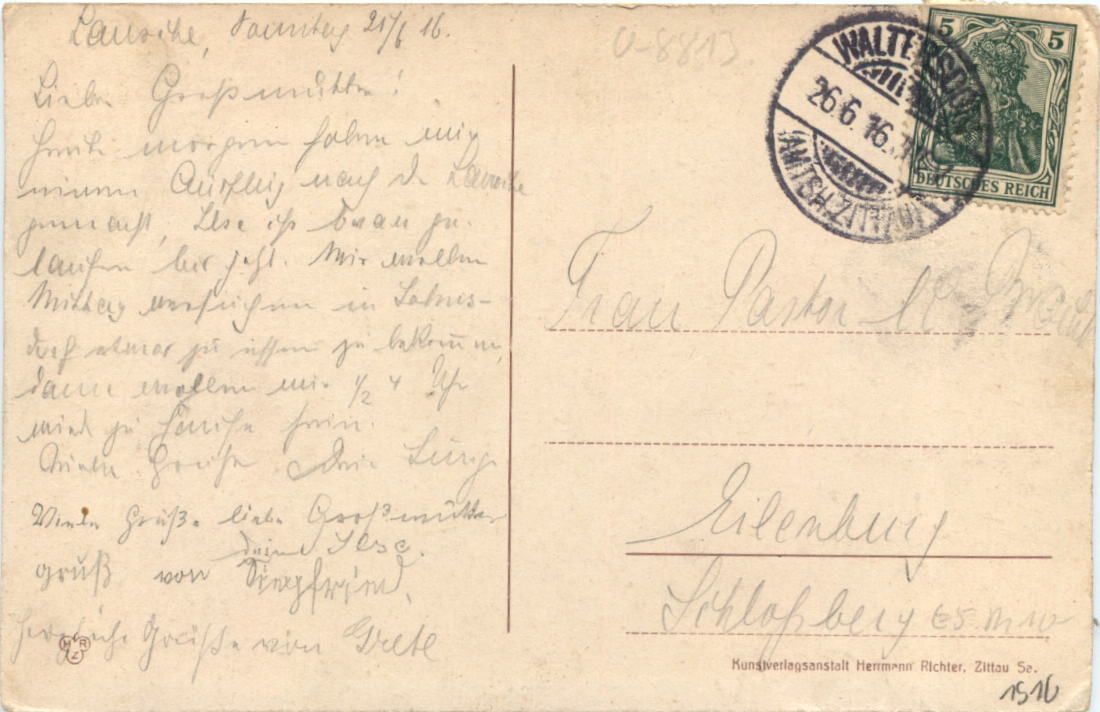 Lausche, Sonntag 25/6 16.
Liebe Großmutter!
Heute morgen haben wir
einen Ausflug nach der Lausche
gemacht, Ilse ist brav ge-
laufen bis jetzt. Wir wollen
Mittag versuchen in
dorf etwas zu essen zu bekommen,
dann wollen wir 1/2 4 Uhr
wieder zu Hause sein.
Viele Grüße Dein
Viele Grüße liebe Großmutter
deine Ilse.
gruß von Siegfried.
Herzliche Grüße von Grete
HRZ
U-8813.
WALTERSDORF
26.6.16.
(AMTSH. ZITTAU)
5 5
DEUTSCHES REICH
Frau Pastor
Eilenburg
Schloßberg
Kunstverlagsanstalt Herrmann Richter, Zittau Sa.
1916